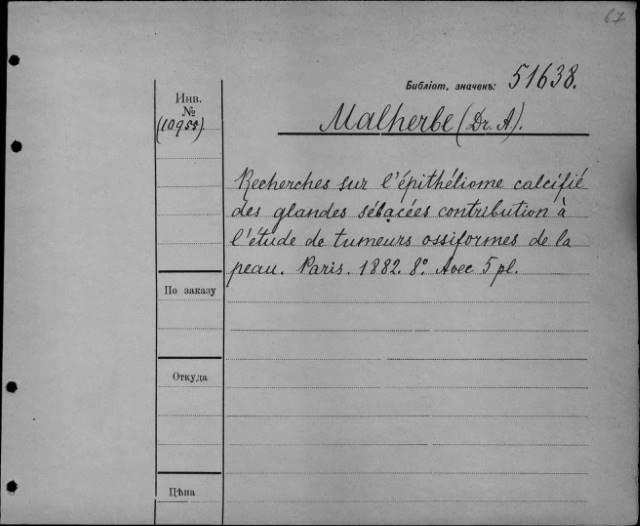 67
Библіот. значекъ: 51638.
Инв.
№
(10955)
Malherbe (Dr. A).
Recherches sur l'épithéliome calcifié
des glandes sébacées contribution à
l'étude de tumeurs ossiformes de la
peau. Paris. 1882. 8°. Avec 5 pl.
По заказу
Откуда
Цѣна